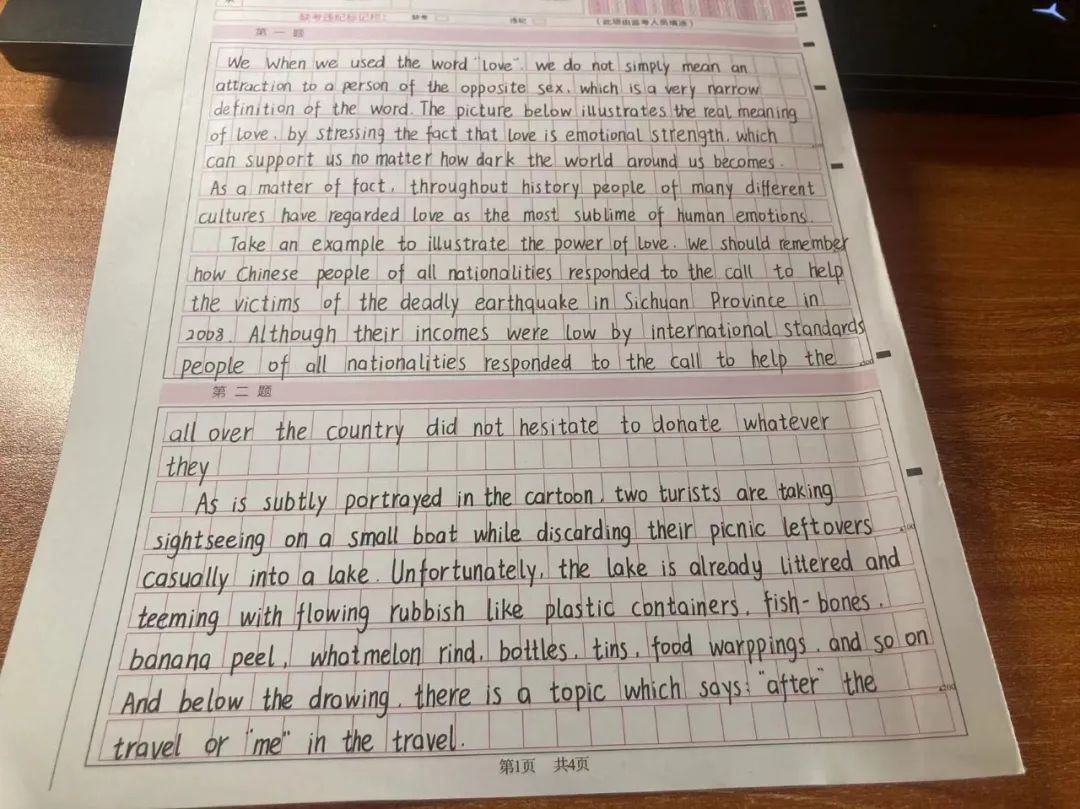 缺考违纪标记栏: 缺考 违纪 (此项由监考人员填涂)
第一题
We When we used the word "love". we do not simply mean an
attraction to a person of the opposite sex, which is a very narrow
definition of the word. The picture below illustrates the real meaning
of love, by stressing the fact that love is emotional strength, which
can support us no matter how dark the world around us becomes.
As a matter of fact, throughout history people of many different
cultures have regarded love as the most sublime of human emotions.
Take an example to illustrate the power of love. We should remember
how Chinese people of all nationalities responded to the call to help
the victims of the deadly earthquake in Sichuan Province in
2008. Although their incomes were low by international standards
people of all nationalities responded to the call to help the
第二题
all over the country did not hesitate to donate whatever
they
As is subtly portrayed in the cartoon, two turists are taking
sightseeing on a small boat while discarding their picnic leftovers
casually into a lake. Unfortunately, the lake is already littered and
teeming with flowing rubbish like plastic containers, fish-bones,
banana peel, whatmelon rind, bottles, tins, food warppings, and so on
And below the drawing, there is a topic which says: "after" the
travel or "me" in the travel.
第1页 共4页